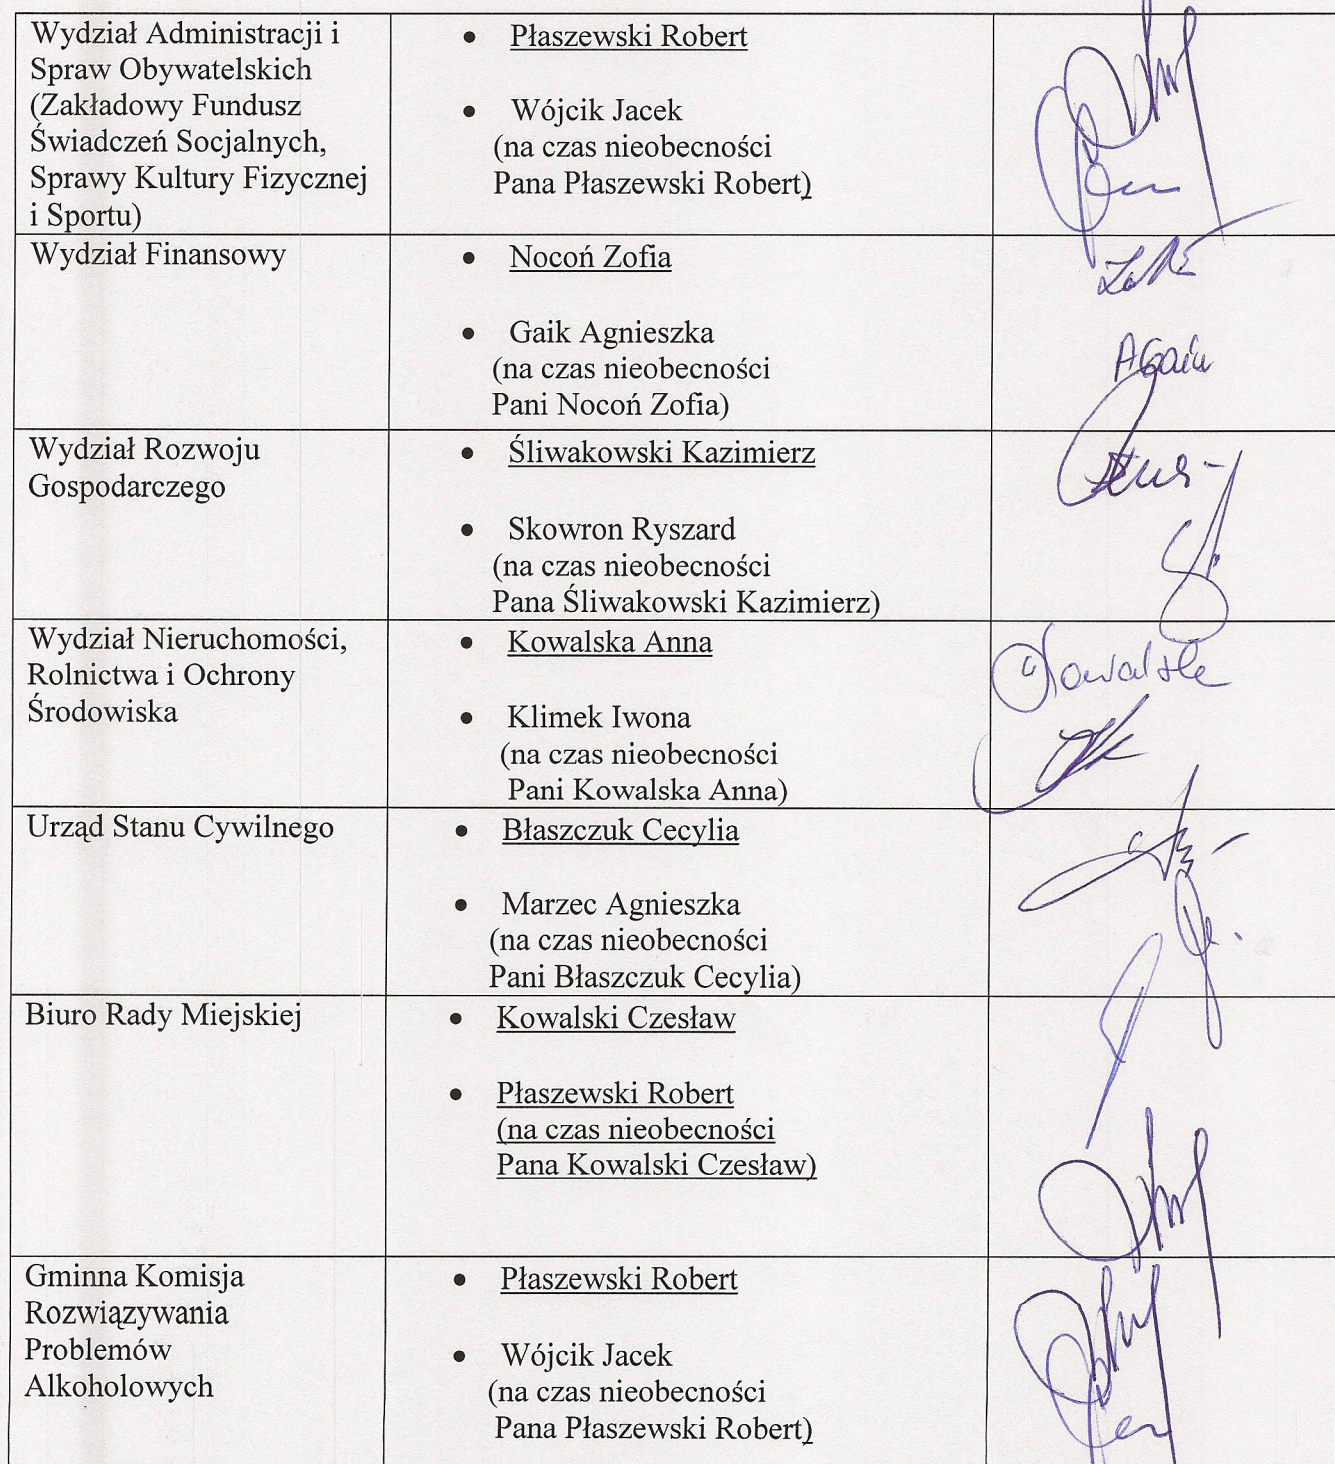 Wydział Administracji i
Spraw Obywatelskich
(Zakładowy Fundusz
Świadczeń Socjalnych,
Sprawy Kultury Fizycznej
i Sportu)
• Płaszewski Robert
• Wójcik Jacek
(na czas nieobecności
Pana Płaszewski Robert)
Wydział Finansowy
• Nocoń Zofia
• Gaik Agnieszka
(na czas nieobecności
Pani Nocoń Zofia)
Wydział Rozwoju
Gospodarczego
• Śliwakowski Kazimierz
• Skowron Ryszard
(na czas nieobecności
Pana Śliwakowski Kazimierz)
Wydział Nieruchomości,
Rolnictwa i Ochrony
Środowiska
• Kowalska Anna
• Klimek Iwona
(na czas nieobecności
Pani Kowalska Anna)
Urząd Stanu Cywilnego
• Błaszczuk Cecylia
• Marzec Agnieszka
(na czas nieobecności
Pani Błaszczuk Cecylia)
Biuro Rady Miejskiej
• Kowalski Czesław
• Płaszewski Robert
(na czas nieobecności
Pana Kowalski Czesław)
Gminna Komisja
Rozwiązywania
Problemów
Alkoholowych
• Płaszewski Robert
• Wójcik Jacek
(na czas nieobecności
Pana Płaszewski Robert)